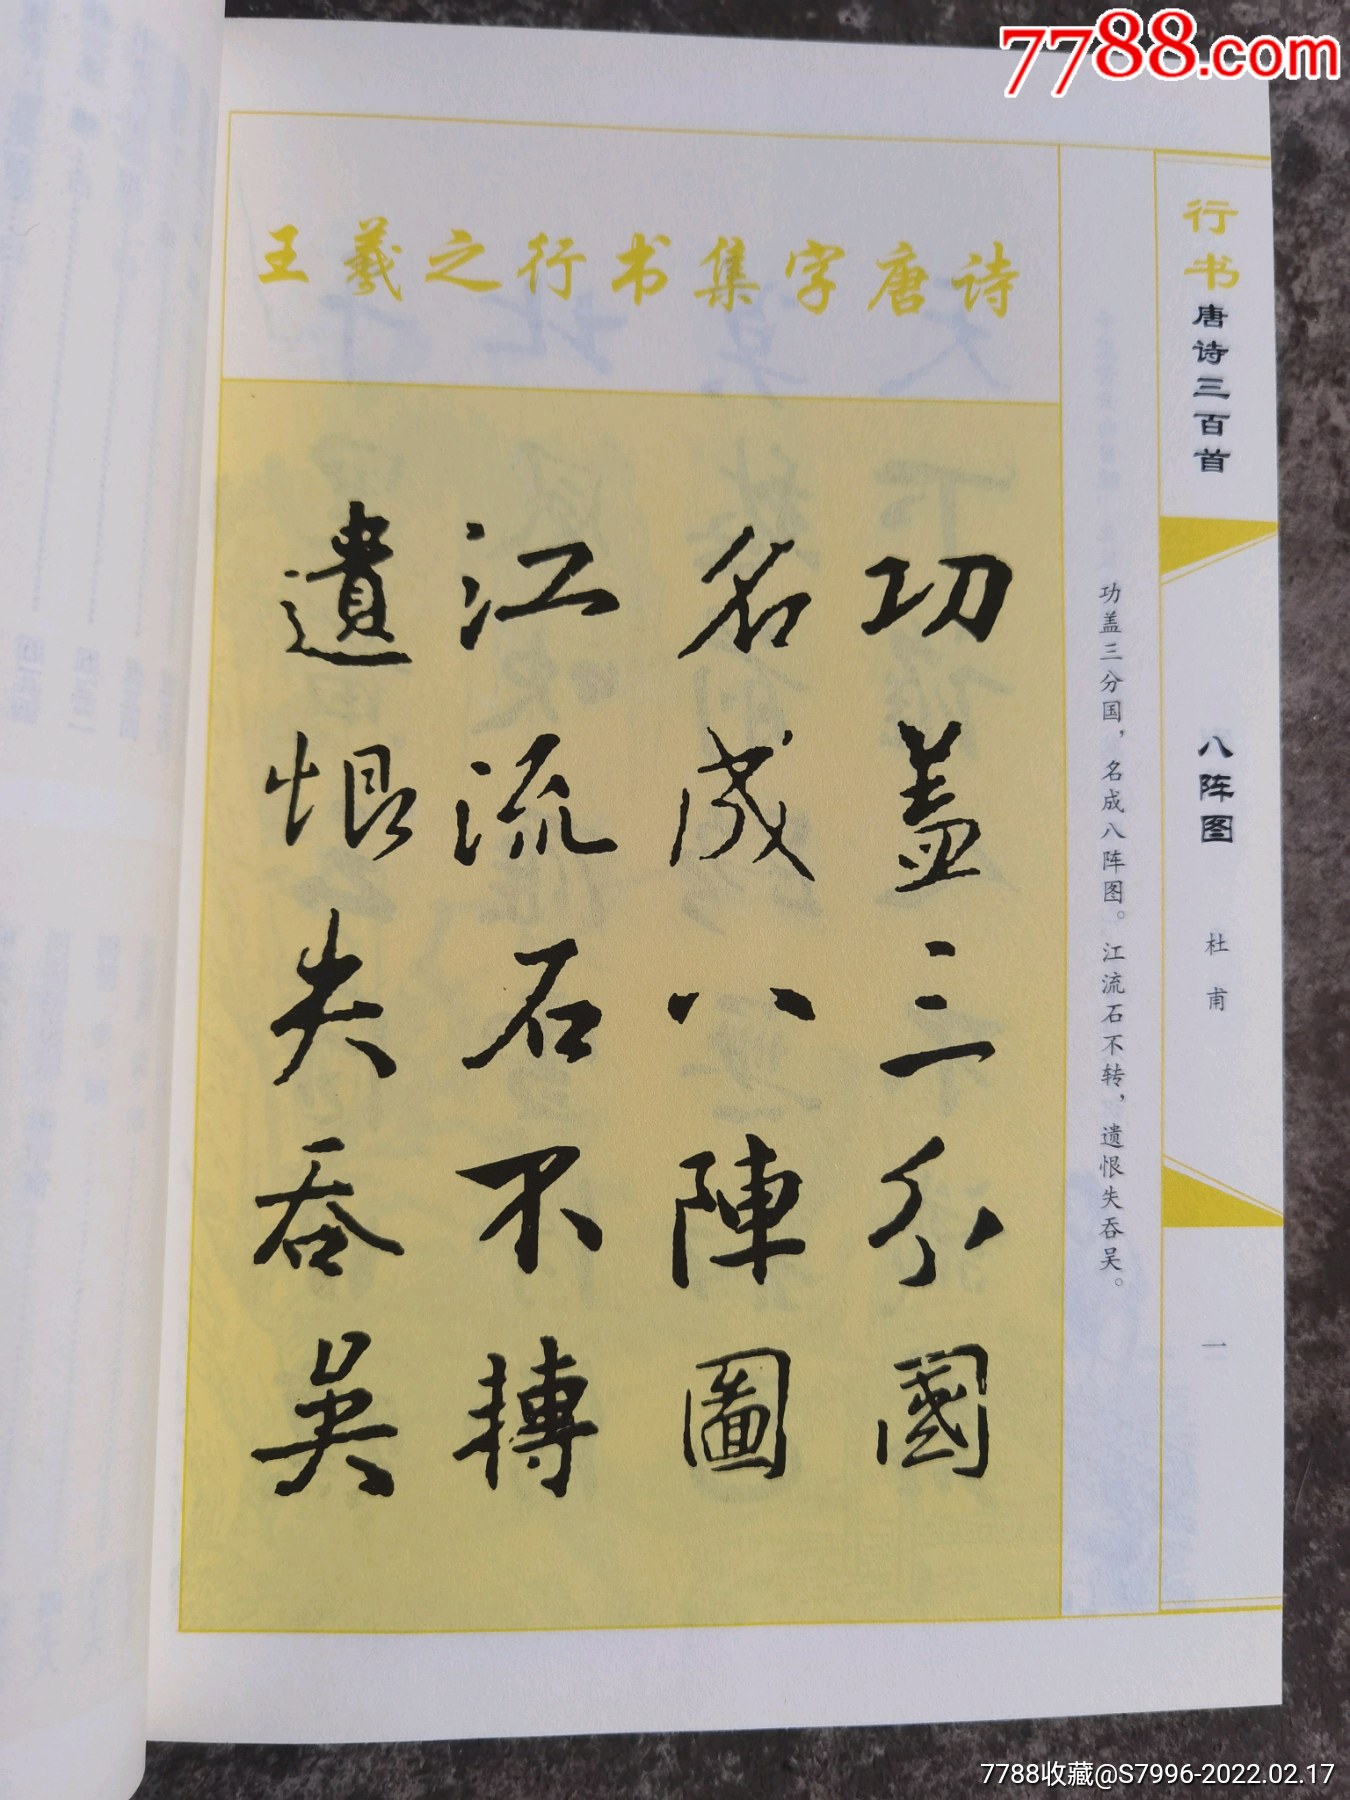 7788.com
王羲之行书集字唐诗
行书唐诗三百首
八阵图
杜甫
一
功盖三分国，名成八阵图。江流石不转，遗恨失吞吴。
功盖三分國
名成八陣圖
江流石不轉
遺恨失吞吳
7788收藏@S7996-2022.02.17